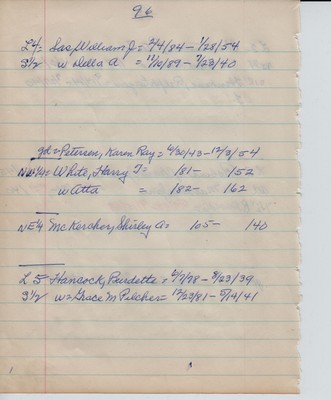 96
L4= Sas, William J= 2/4/84- 1/28/54
S1/2 w Della A = 11/10/89- 7/23/40
gd= Petersen, Karen Ray= 6/20/43-12/3/54
NW1/4= White, Harry T= 181- 152
w Atta = 182- 162
NE4 McKercher, Shirley A= 105- 140
L 5 Hancock, Burdette= 2/7/78- 8/23/39
S1/2 w=Grace M Pilcher= 12/23/81- 5/14/41